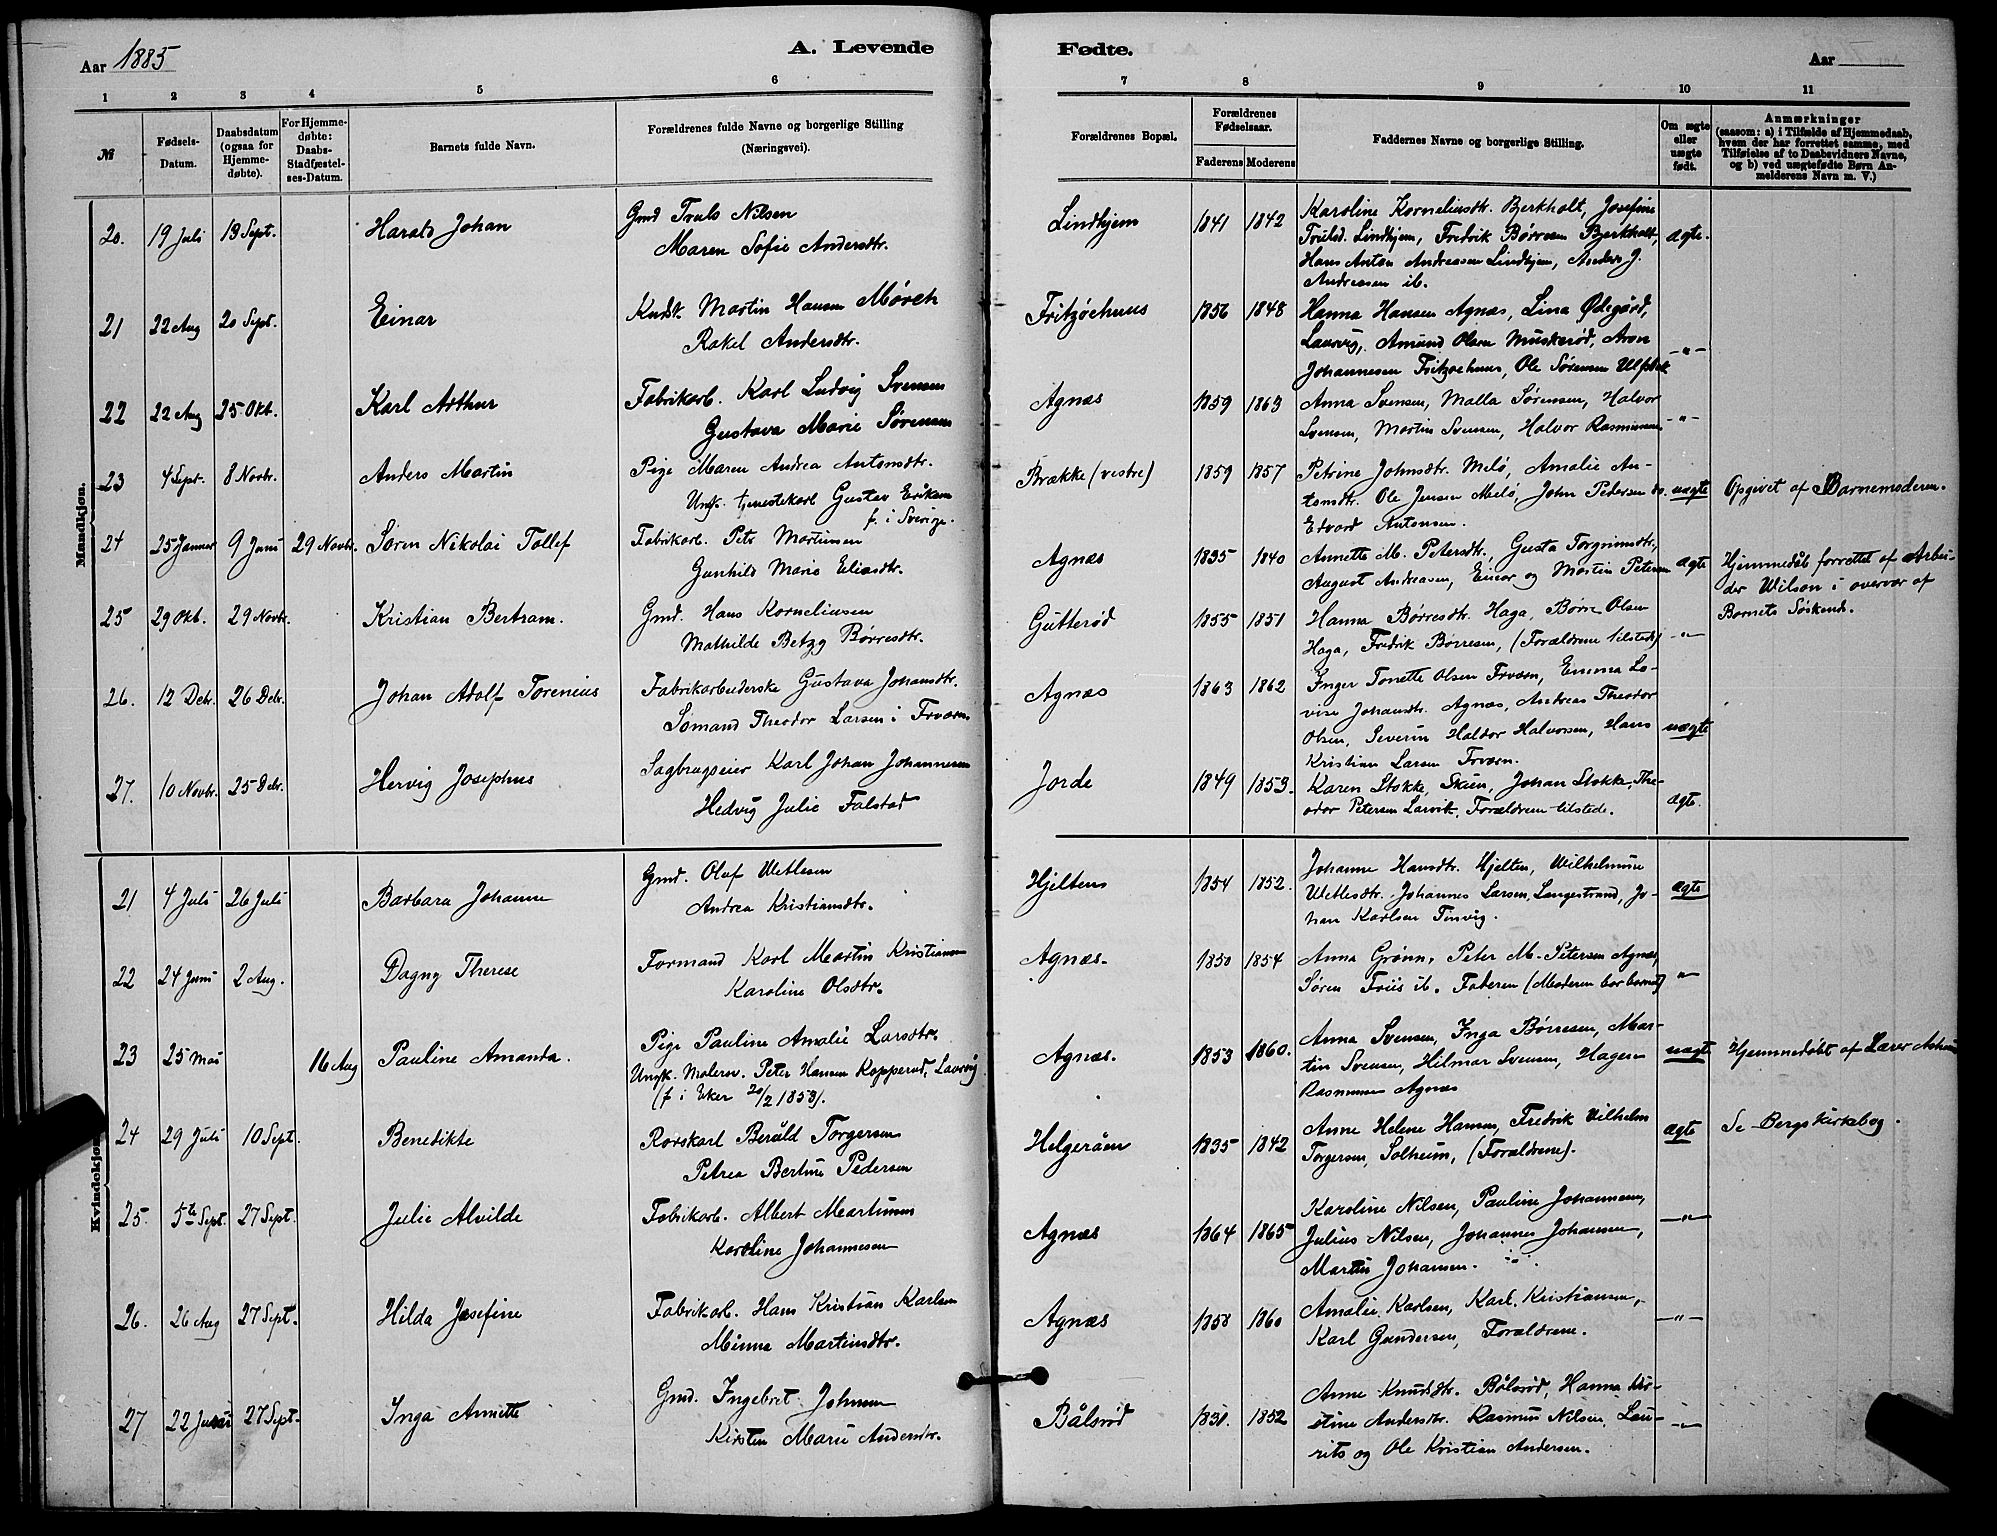 Aar 1885
A. Levende
1 2 3 4 5 6
№
Fødsels-
Datum.
Daabsdatum
(ogsaa for
Hjemme-
døbte).
For Hjemme-
døbte:
Daabs-
Stadfæstel-
ses-Datum.
Barnets fulde Navn.
Forældrenes fulde Navne og borgerlige Stilling
(Næringsvei).
Mandkjøn.
20. 19 Juli 13 Sept. Harald Johan Gmd Truls Nilsen
Maren Sofie Andersdtr.
21 22 Aug 20 Sept. Einar Kudsk. Martin Hansen Mørch
Rakel Andersdtr.
22 22 Aug 25 Okt. Karl Arthur Fabrikarb. Karl Ludvig Svensen
Gustava Marie Sørensen
23 4 Sept. 8 Novbr. Anders Martin Pige Maren Andrea Antonsdtr.
Ungk. tjenestekarl Gustav Eriksen
f. i Sverige.
24 25 Januar 9 Juni 29 Novbr. Søren Nikolai Tollef Fabrikarb. Petr Martinsen
Gunhild Marie Eliasdtr.
25 29 Okt. 29 Novbr. Kristian Bertram. Gmd. Hans Korneliusen
Mathilde Betzy Børresdtr.
26. 12 Debr. 26 Debr. Johan Adolf Torenius Fabrikarbeiderske Gustava Johansdtr.
Sømand Theodor Larsen i Trværn
27. 10 Novbr. 25 Debr. Hervig Josephus Sagbrugseier Karl Johan Johannesen
Hedvig Julie Falstad
Kvindekjøn.
21 4 Juli 26 Juli Barbara Johanne Gmd. Oluf Wetlesen
Andrea Kristiansdtr.
22 24 Juni 2 Aug. Dagny Therese Formand Karl Martin Kristiansen
Karoline Olsdtr.
23 25 Mai 16 Aug Pauline Amanda. Pige Pauline Amalie Larsdtr.
Ungk. Malersv. Peter Hansen Kopperud, Laurvig
(f. i Eker 20/2 1853).
24 29 Juli 10 Sept. Benedikte Rorskarl Berald Torgersen
Petrea Bertine Pedersen
25. 5te Sept. 27 Sept. Julie Alvilde Fabrikarb. Albert Martinsen
Karoline Johannesen
26. 26 Aug 27 Sept. Hilda Josefine Fabrikarb. Hans Kristian Karlsen
Minna Martinsdtr.
27 22 27 Sept. Inga Annette Gmd. Ingebret Johnsen
Kirsten Marie Andersdtr.
Fødte.
Aar
7 8 9 10 11
Forældrenes Bopæl.
Forældrenes
Fødselsaar.
Faderens Moderens
Faddernes Navne og borgerlige Stilling.
Om ægte
eller
uægte
født.
Anmærkninger
(saasom: a) i Tilfælde af Hjemmedaab,
hvem der har forrettet samme, med
Tilføielse af to Daabsvidners Navne,
og b) ved uægtefødte Børn An-
melderens Navn m. V.)
Lindhjem 1841 1842 Karoline Korneliusdtr. Bjerkholt, Josefine
Trulsd. Lindhjem, Fredrik Børresen Bjerkholt, ægte.
Hans Anton Andreasen Lindhjem, Anders J.
Andreasen ib.
Fritzøehuus 1856 1848 Hanna Hansen Agnæs, Lina Ødegård,
Laurvig, Amund Olsen Muskerød, Aron
Johannesen Fritzøehuus, Ole Sørensen — " —
Agnæs 1859 1863 Anna Svensen, Malla Sørensen, Halvor
Svensen, Martin Svensen, Halvor Rasmussen — " —
Brække (vestre) 1859 1857 Petrine Johnsdtr. Melø, Amalie An-
tonsdtr. Ole Jensen Melø, John Pedersen do. uægte Opgivet af Barnemoderen.
Edvard Antonsen.
Agnæs 1835 1840 Annette M. Petersdtr., Gusta Torgrimsdtr.,
August Andreasen, Einar og Martin Petersen ægte Hjemmedøbt forrettet af Arbei-
der Wilson i overvær af
Barnets Søskende.
Gutterød 1855 1851 Hanna Børresdtr. Haga, Børre Olsen
Haga, Fredrik Børresen, (Forældrene tilstede) — " —
Agnæs 1863 1862 Inger Tonette Olsen Trværn, Emma Lo-
vise Johansdtr. Agnæs, Andreas Theodor
Olsen, Severin Haldor Halvorsen, Hans uægte
Kristian Larsen Trværn.
Jorde 1849 1853. Karen Stokke, Skien, Johan Stokke, The-
odor Petersen Larvik, Forældrene tilstede. ægte.
Hjelten 1854 1852. Johanne Hansdtr. Hjelten, Wilhelmine
Wetlesdtr. Johannes Larsen, Langestrand, Jo- ægte
han Karlsen Tinvig.
Agnæs. 1850 1854 Anna Grønn, Peter M. Petersen Agnæs,
Søren Friis ib. Faderen (Moderen bar barnet) "
Agnæs. 1853 1860. Anna Svensen, Inga Børresen, Mar-
tin Svensen, Hilmar Svensen, Hagen uægte Hjemmedøbt af Lærer
Rasmussen Agnæs
Helgeråen 1835 1842 Anne Helene Hansen, Fredrik Vilhelm ægte Se Bergs kirkebog.
Torgersen, Solheim, (Forældrene).
Agnæs 1864 1865 Karoline Nilsen, Pauline Johannesen,
Julius Nilsen, Johannes Johansen, — " —
Martin Johansen.
Agnæs 1858 1860 Amalie Karlsen, Karl Kristiansen,
Karl Gundersen, Forældrene. — " —
Bålsrød 1831. 1852 Anne Knudsdtr. Bålsrød, Hanna Kir-
stine Andersdtr. Rasmus Nilsen, Lau- — " —
rits og Ole Kristian Andersen.